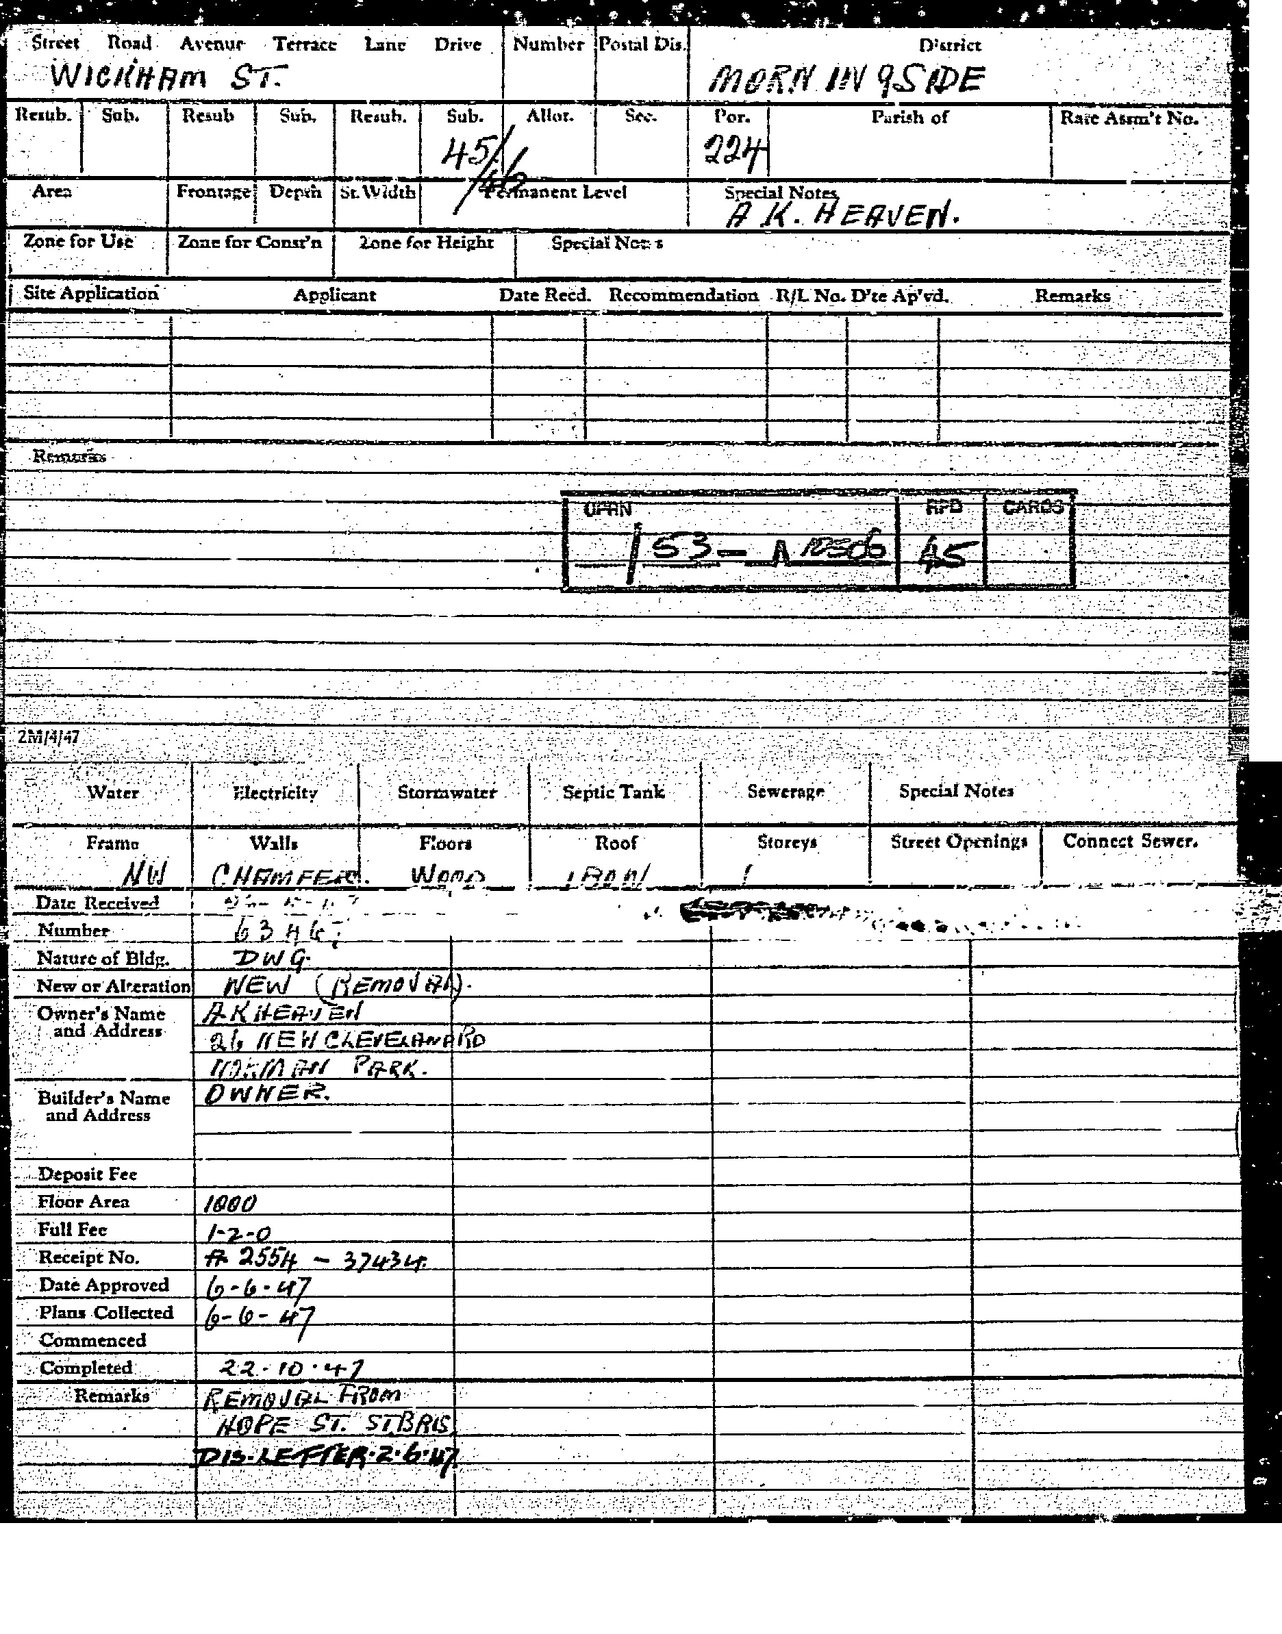 Street Road Avenue Terrace Lane Drive Number Postal Dis. District
WICKHAM ST. MORNINGSIDE
Resub. Sub. Resub Sub. Resub. Sub. Allot. Sec. Por. Parish of Rate Assm't No.
45/ 224
Area Frontage Depth St. Width Permanent Level Special Notes
A K. HEAVEN.
Zone for Use Zone for Constr'n Zone for Height Special Notes
Site Application Applicant Date Recd. Recommendation R/L No. D'te Ap'vd. Remarks
Remarks
UPRN RPD CARDS
153 - 45
2M/4/47
Water Electricity Stormwater Septic Tank Sewerage Special Notes
Frame Walls Floors Roof Storeys Street Openings Connect Sewer.
NW CHAMFER. WOOD IRON 1
Date Received
Number
Nature of Bldg. DWG.
New or Alteration NEW (REMOVAL).
Owner's Name A K HEAVEN
and Address
26 NEW CLEVELAND RD
NORMAN PARK.
Builder's Name OWNER.
and Address
Deposit Fee
Floor Area 1000
Full Fee 1-2-0
Receipt No. A 2554 - 37434.
Date Approved 6-6-47
Plans Collected 6-6-47
Commenced
Completed 22-10-47
Remarks REMOVAL FROM
HOPE ST. STBRIS
DIS. LETTER. 2.6.47.